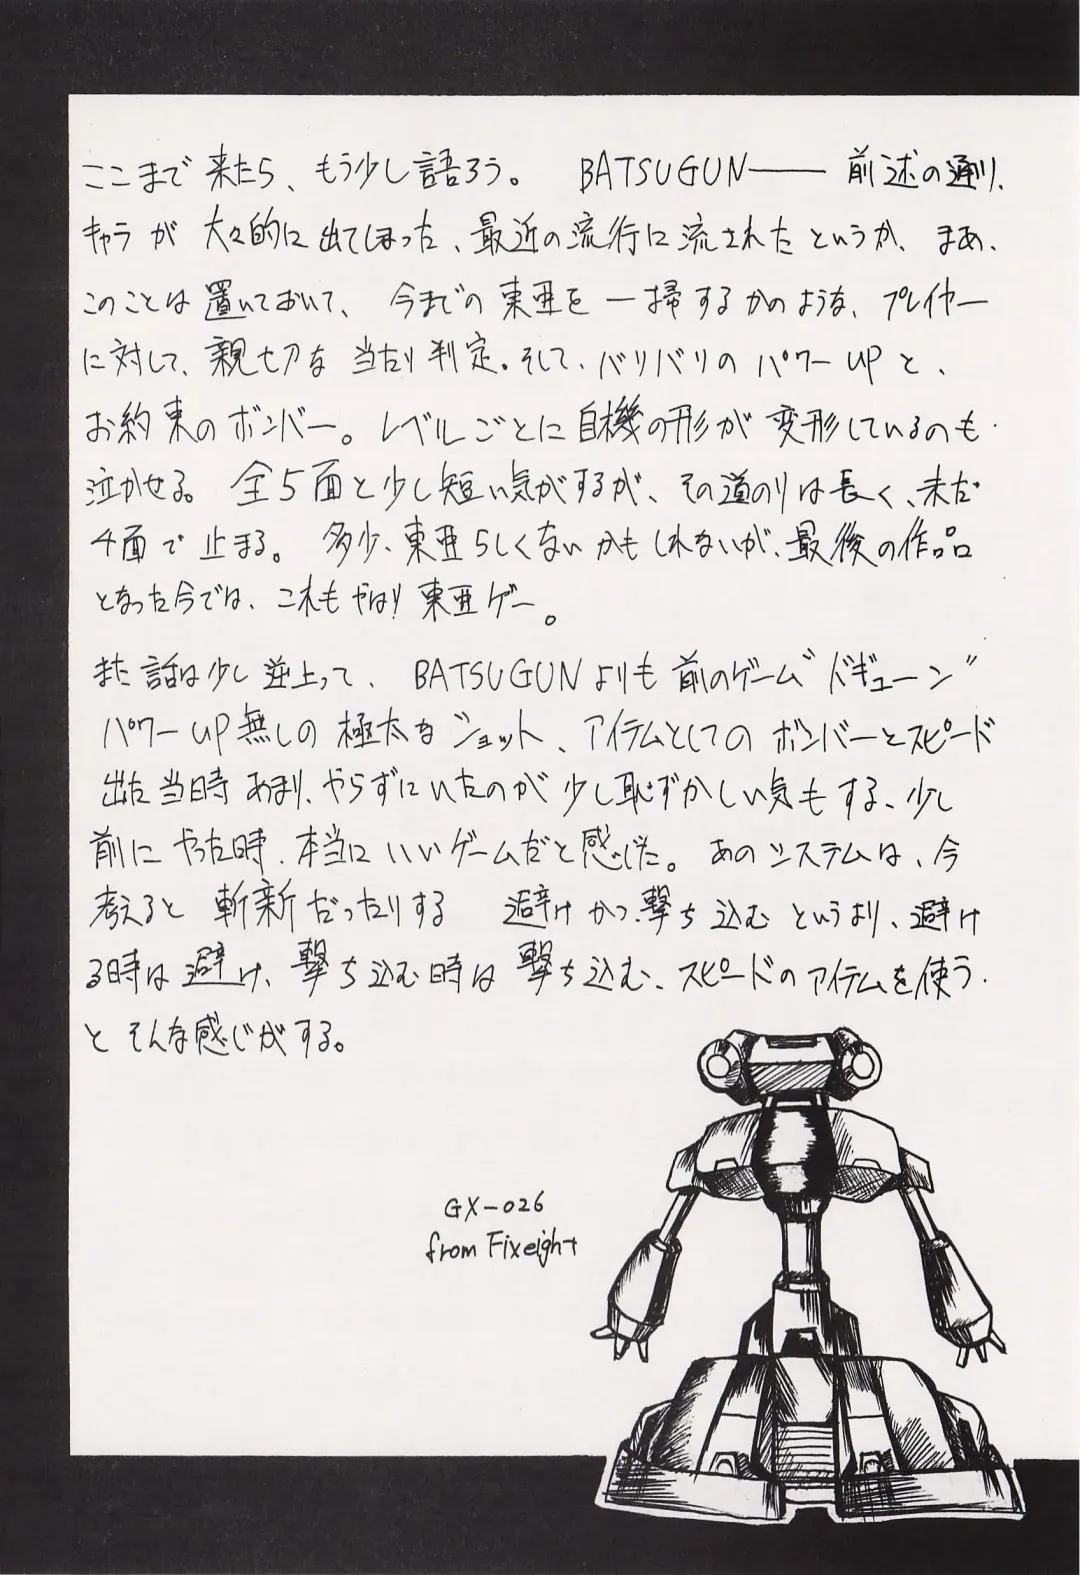 ここまで来たら、もう少し語ろう。 BATSUGUN―― 前述の通り、
キャラが大々的に出てしまった、最近の流行に流されたというか、まあ、
このことは置いておいて、今までの東亜を一掃するかのような、プレイヤー
に対して、親切な当たり判定。そして、バリバリのパワーUPと、
お約束のボンバー。レベルごとに自機の形が変形しているのも
泣かせる。全5面と少し短い気がするが、その道のりは長く、未だ
4面で止まる。多少、東亜らしくないかもしれないが、最後の作品
となった今では、これもやはり東亜ゲー。
また話は少し逆上って、BATSUGUNよりも前のゲーム"ドギューン"
パワーUP無しの極太なショット、アイテムとしてのボンバーとスピード
出た当時あまり、やらずにいたのが少し恥ずかしい気もする、少し
前にやった時、本当にいいゲームだと感じた。あのシステムは、今
考えると斬新だったりする 避けかつ撃ち込むというより、避け
る時は避け、撃ち込む時は撃ち込む、スピードのアイテムを使う.
とそんな感じがする。
GX-026
from Fixeight